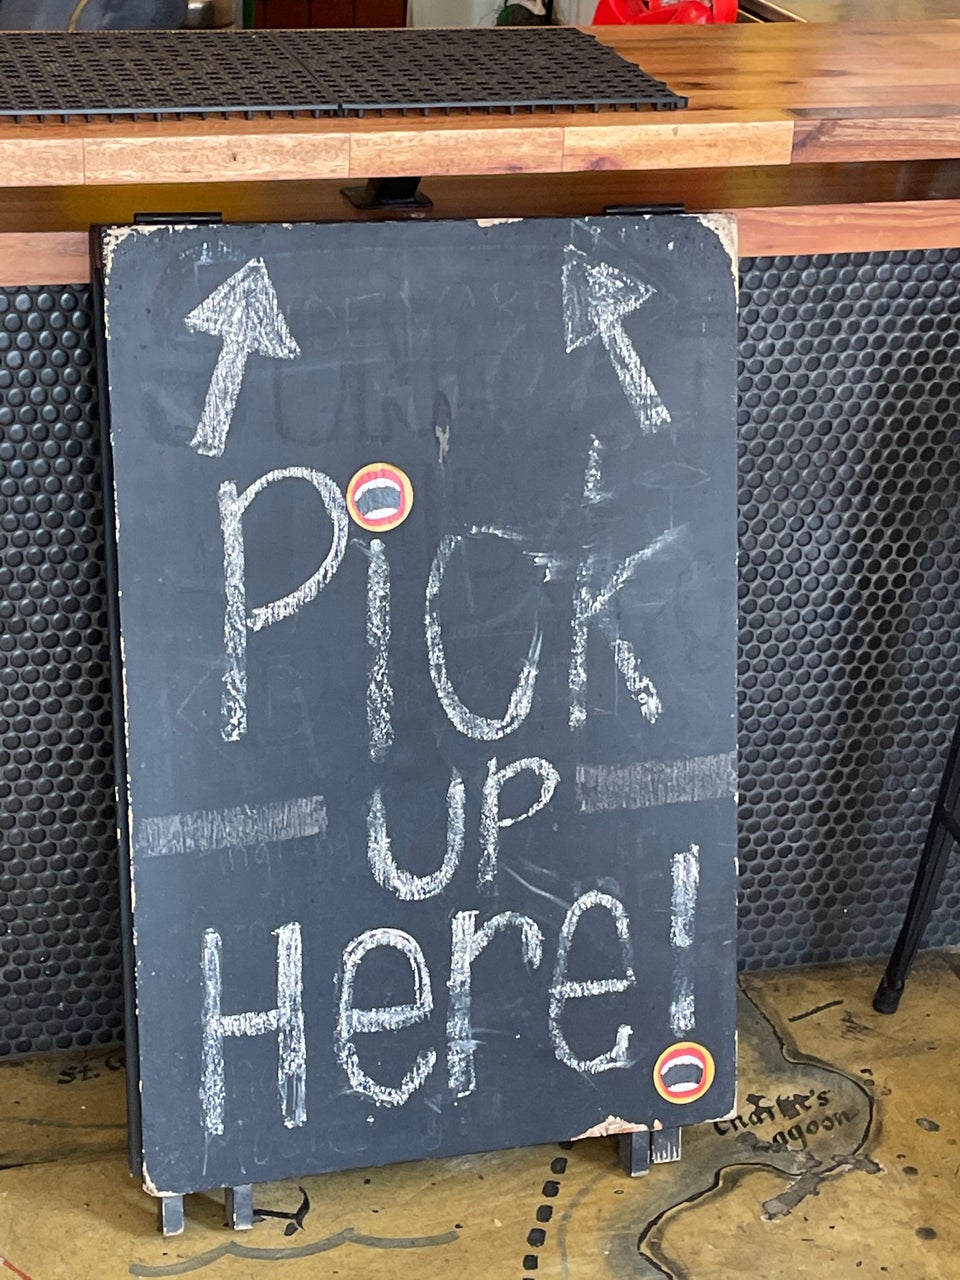 Pick
up
Here!
St.
Charlie's
Lagoon